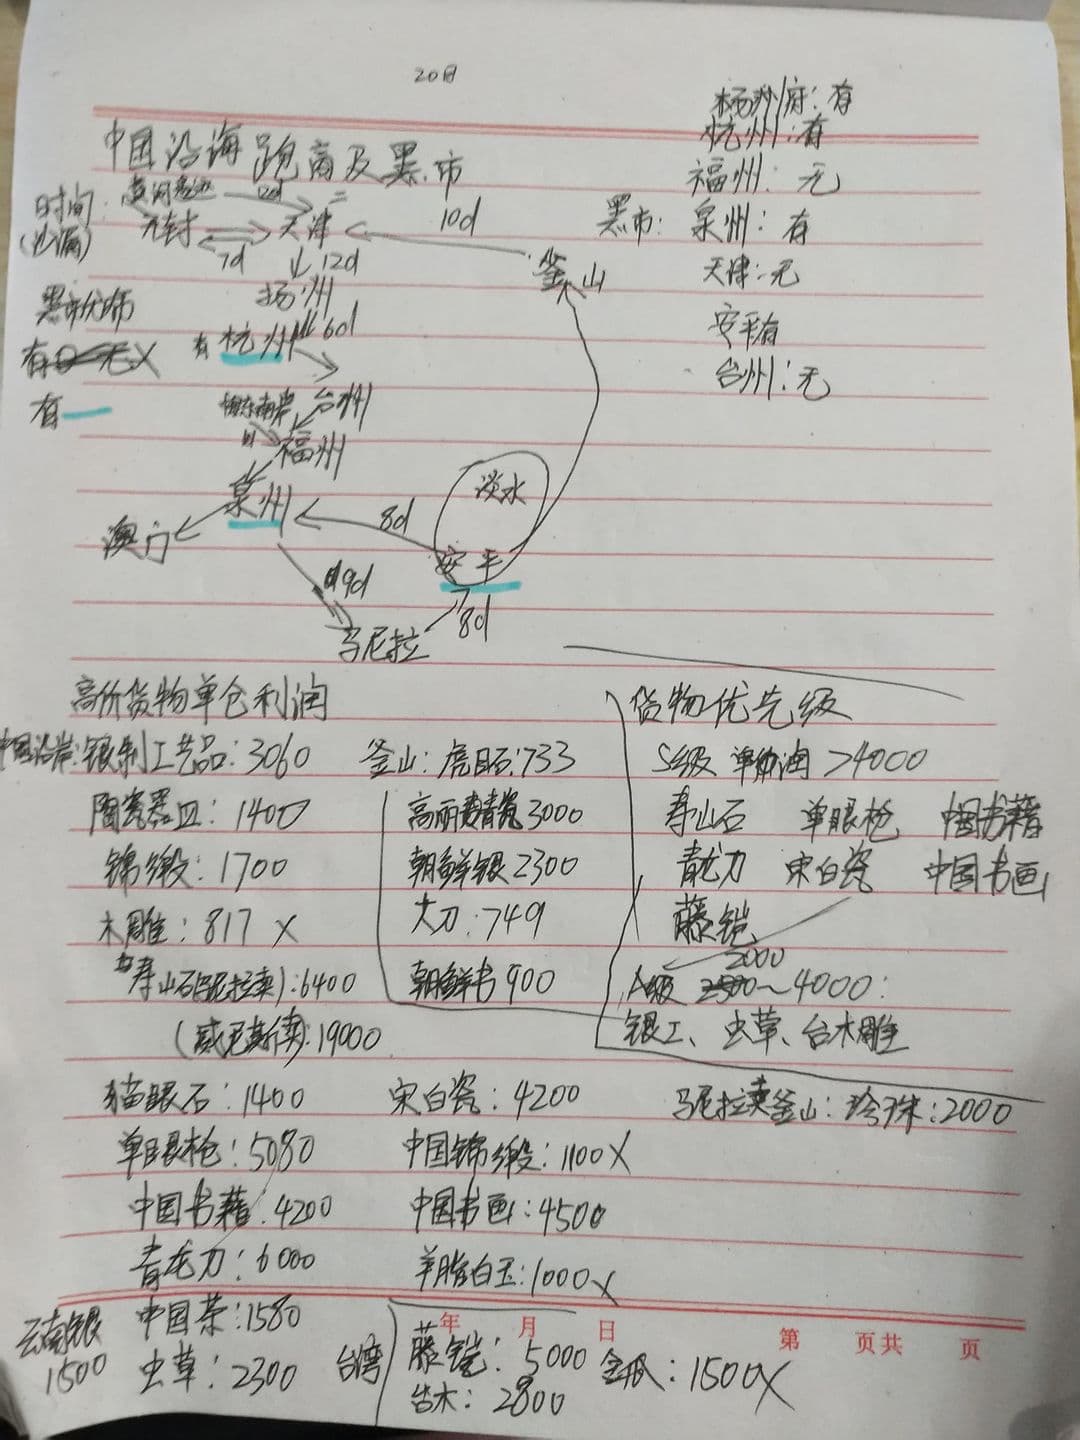 20日
杨州府：有
杭州：有
中国沿海跑商及黑市
福州：无
黑市：泉州：有
天津：无
安平有
台州：无
时间
(沙漏)
天津
7d
12d
10d
釜山
扬州
黑市优师
有 杭州 6d
有 无X
有
台州
福州
泉州
淡水
8d
澳门
安平
19d
8d
马尼拉
高价货物单仓利润
中国沿岸：银制工艺品：3060
陶瓷器皿：1400
锦缎：1700
木雕：817 X
寿山石(马尼拉卖)：6400
(威尼斯卖)：19000
釜山：虎目石：733
高丽青瓷3000
朝鲜银2300
大刀：749
朝鲜书900
货物优先级
S级 单仓利润>4000
寿山石 单眼枪 中国书籍
青龙刀 宋白瓷 中国书画
藤铠
2000
A级 2500~4000：
银工、虫草、台木雕
猫眼石：1400 宋白瓷：4200 马尼拉卖釜山：珍珠：2000
单眼枪：5080 中国锦缎：1100X
中国书籍：4200 中国书画：4500
青龙刀：6000 羊脂白玉：1000X
云南银
1500
中国茶：1580
虫草：2300
年 月 日 第 页共 页
台湾 藤铠：5000 金瓜：1500X
台木：2800